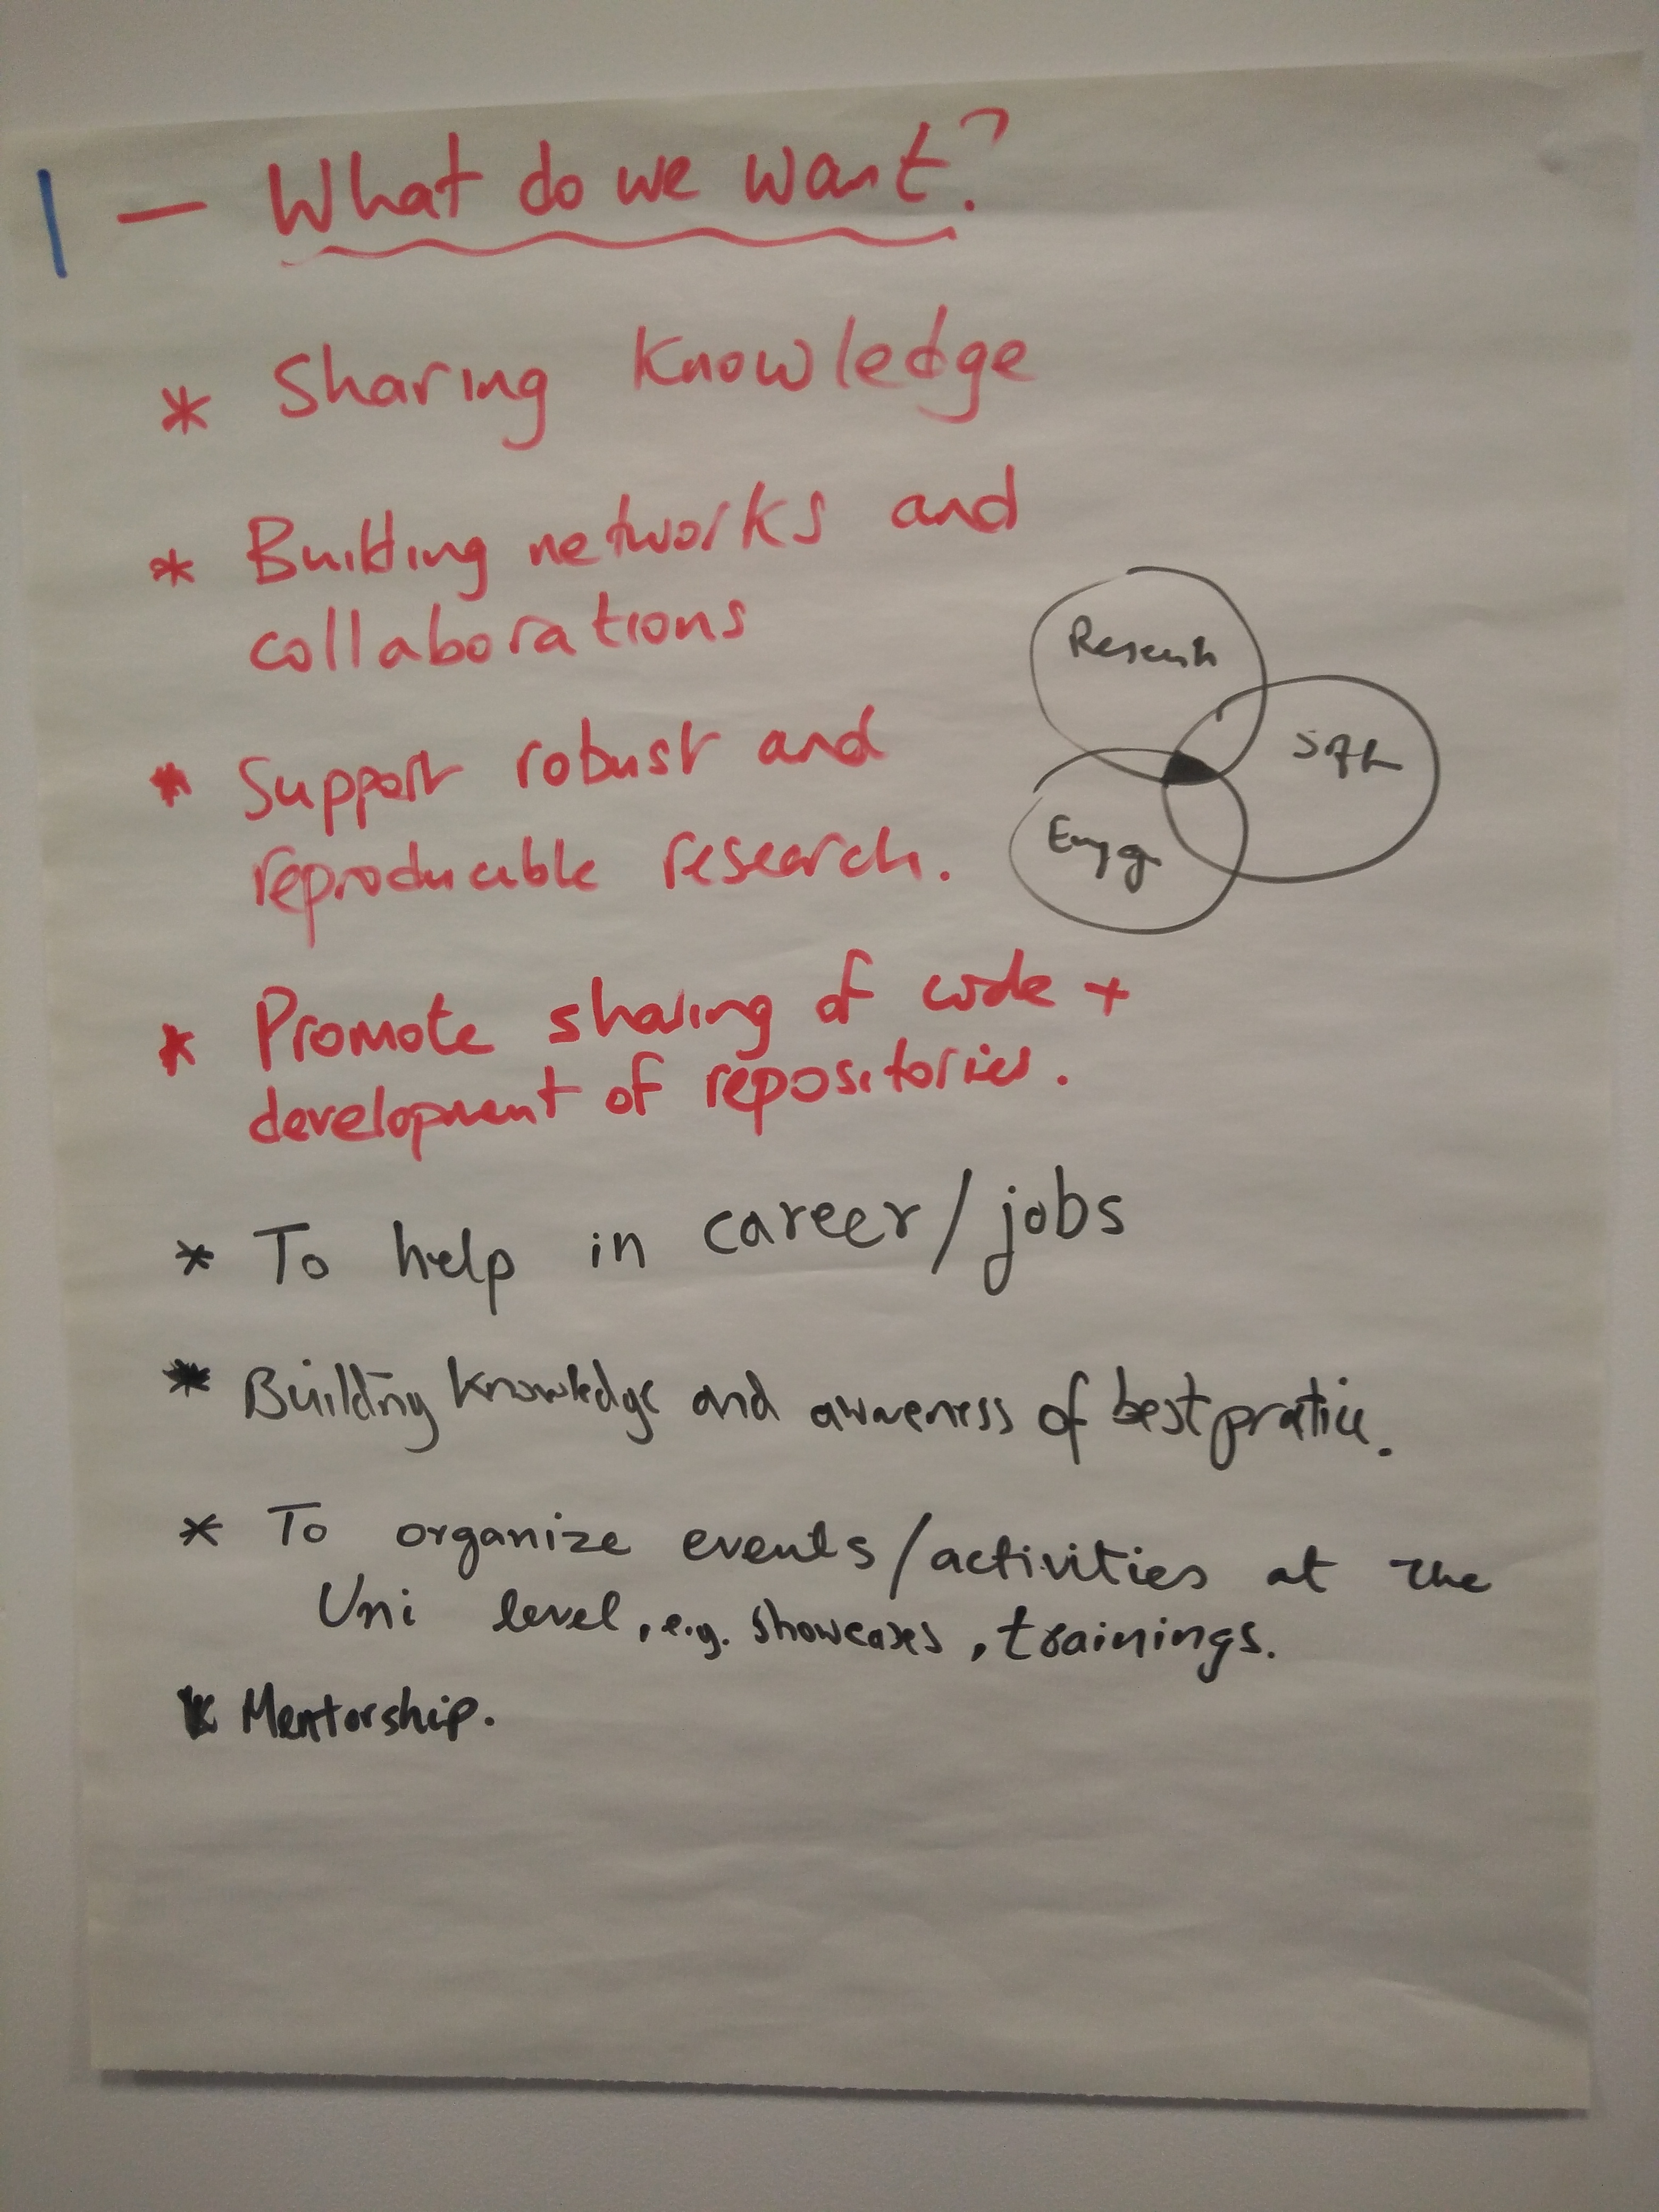 1 — What do we want?
* Sharing Knowledge
* Building networks and
collaborations
* Support robust and
reproducible research.
* Promote sharing of code +
development of repositories.
Research
* To help in career/jobs
* Building knowledge and awareness of best pratice.
* To organize events/activities at the
Uni level, e.g. showcases, trainings.
* Mentorship.